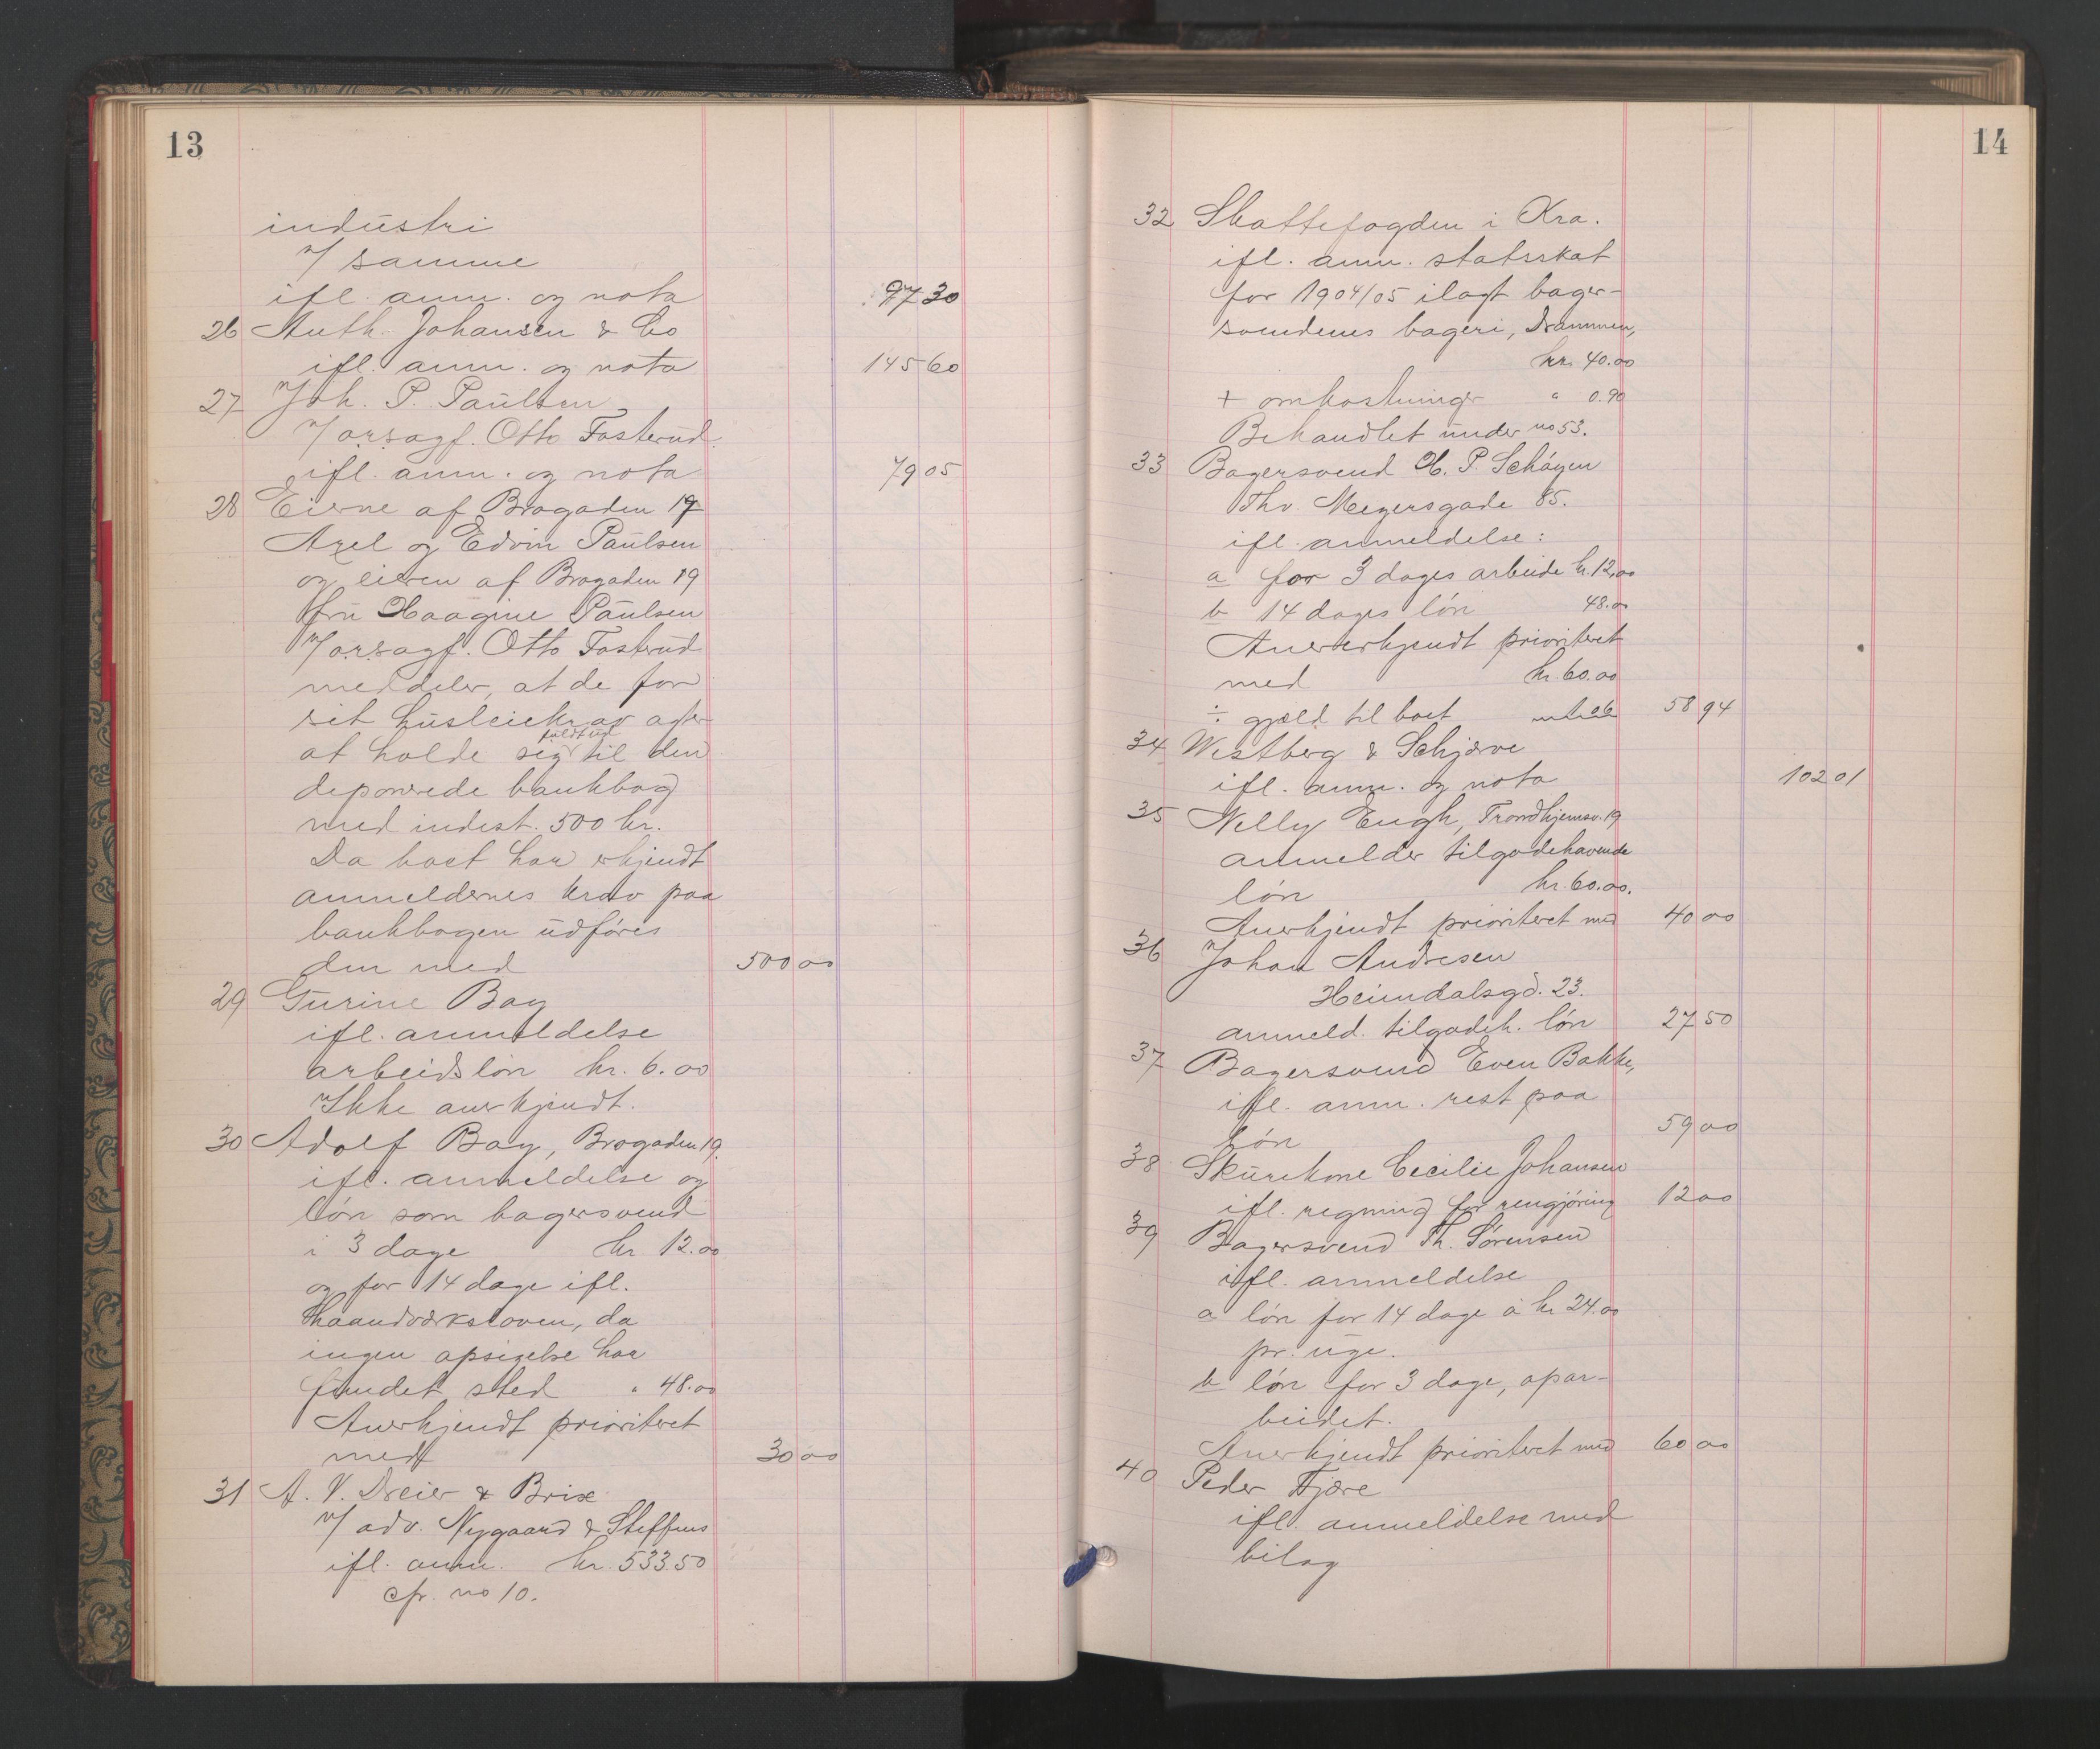 13
industri
v/ samme
ifl. anm. og nota 97 30
26 Anth. Johansen & Co
ifl. anm. og nota 145 60
27 Joh. P. Paulsen
v/ o.r.sagf. Otto Fosterud
ifl. anm. og nota 79 05
28 Eierne af Brogaden 17
Axel og Edvin Paulsen
og eieren af Brogaden 19
fru Haagine Paulsen
v/ o.r.sagf. Otto Fosterud
meddeler, at de for
sit husleiekrav agter
fuldtud
at holde sig til den
deponerede bankbog
med indest. 500 kr.
Da boet har erkjendt
anmeldernes krav paa
bankbogen udføres
den med 500 00
29 Gurine Bay
ifl. anmeldelse
arbeidsløn kr. 6.00
Ikke anerkjendt.
30 Adolf Bay, Brogaden 19.
ifl. anmeldelse og
løn som bagersvend
i 3 dage kr 12.00
og for 14 dage ifl.
haandværksloven, da
ingen opsigelse har
fundet sted " 48.00
Anerkjendt prioriteret
med 30 00
31 A. V. Dreier & Brix
v/ adv. Nygaard & Steffens
ifl. anm. kr. 533.50
cfr. no 10.
14
32 Skattefogden i Kra.
ifl. anm. statsskat
for 1904/05 ilagt bager-
svendenes bageri, Drammen,
kr. 40.00
+ omkostninger " 0.90
Behandlet under no 53.
33 Bagersvend H. P. Schøyen
Thv. Meyersgade 85.
ifl. anmeldelse:
a for 3 dages arbeide kr. 12.00
b 14 dages løn 48.00
Anererkjendt prioriteret
med kr. 60.00
÷ gjæld til boet 58 94
34 Westberg & Schjærve
ifl. anm. og nota 102 01
35 Nelly Engh, Trondhjemsv. 19
anmelder tilgodehavende
løn kr. 60.00.
Anerkjendt prioriteret med 40 00
36 Johan Andresen
Heimdalsgd. 23.
anmeld. tilgodeh. løn 27 50
37 Bagersvend Even Bakke,
ifl. anm. rest paa
løn 59 00
38 Skurekone Cecilie Johansen
ifl. regning for rengjøring 12 00
39 Bagersvend Th. Sørensen
ifl. anmeldelse
a løn for 14 dage à kr 24.00
pr. uge.
b løn for 3 dage, opar-
beidet.
Anerkjendt prioriteret med 60 00
40 Peder Fjære
ifl. anmeldelse med
bilag